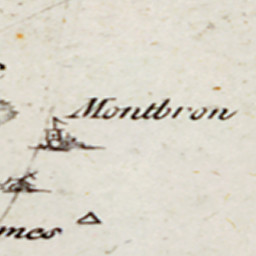 Montbron
mes